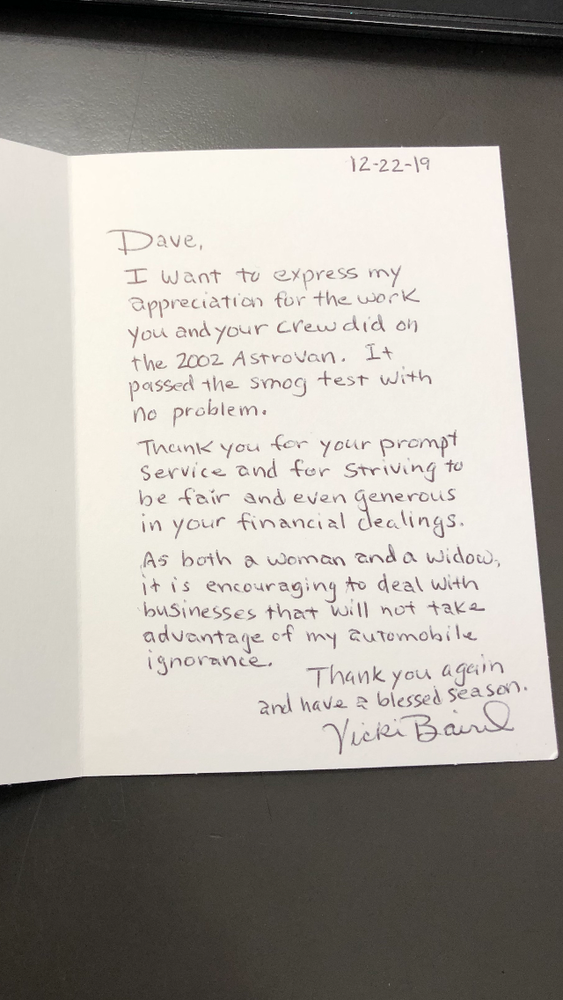 12-22-19
Dave,
I want to express my
appreciation for the work
you and your crew did on
the 2002 Astrovan. It
passed the smog test with
no problem.
Thank you for your prompt
service and for striving to
be fair and even generous
in your financial dealings.
As both a woman and a widow,
it is encouraging to deal with
businesses that will not take
advantage of my automobile
ignorance.
Thank you again
and have a blessed season.
Vicki Baird